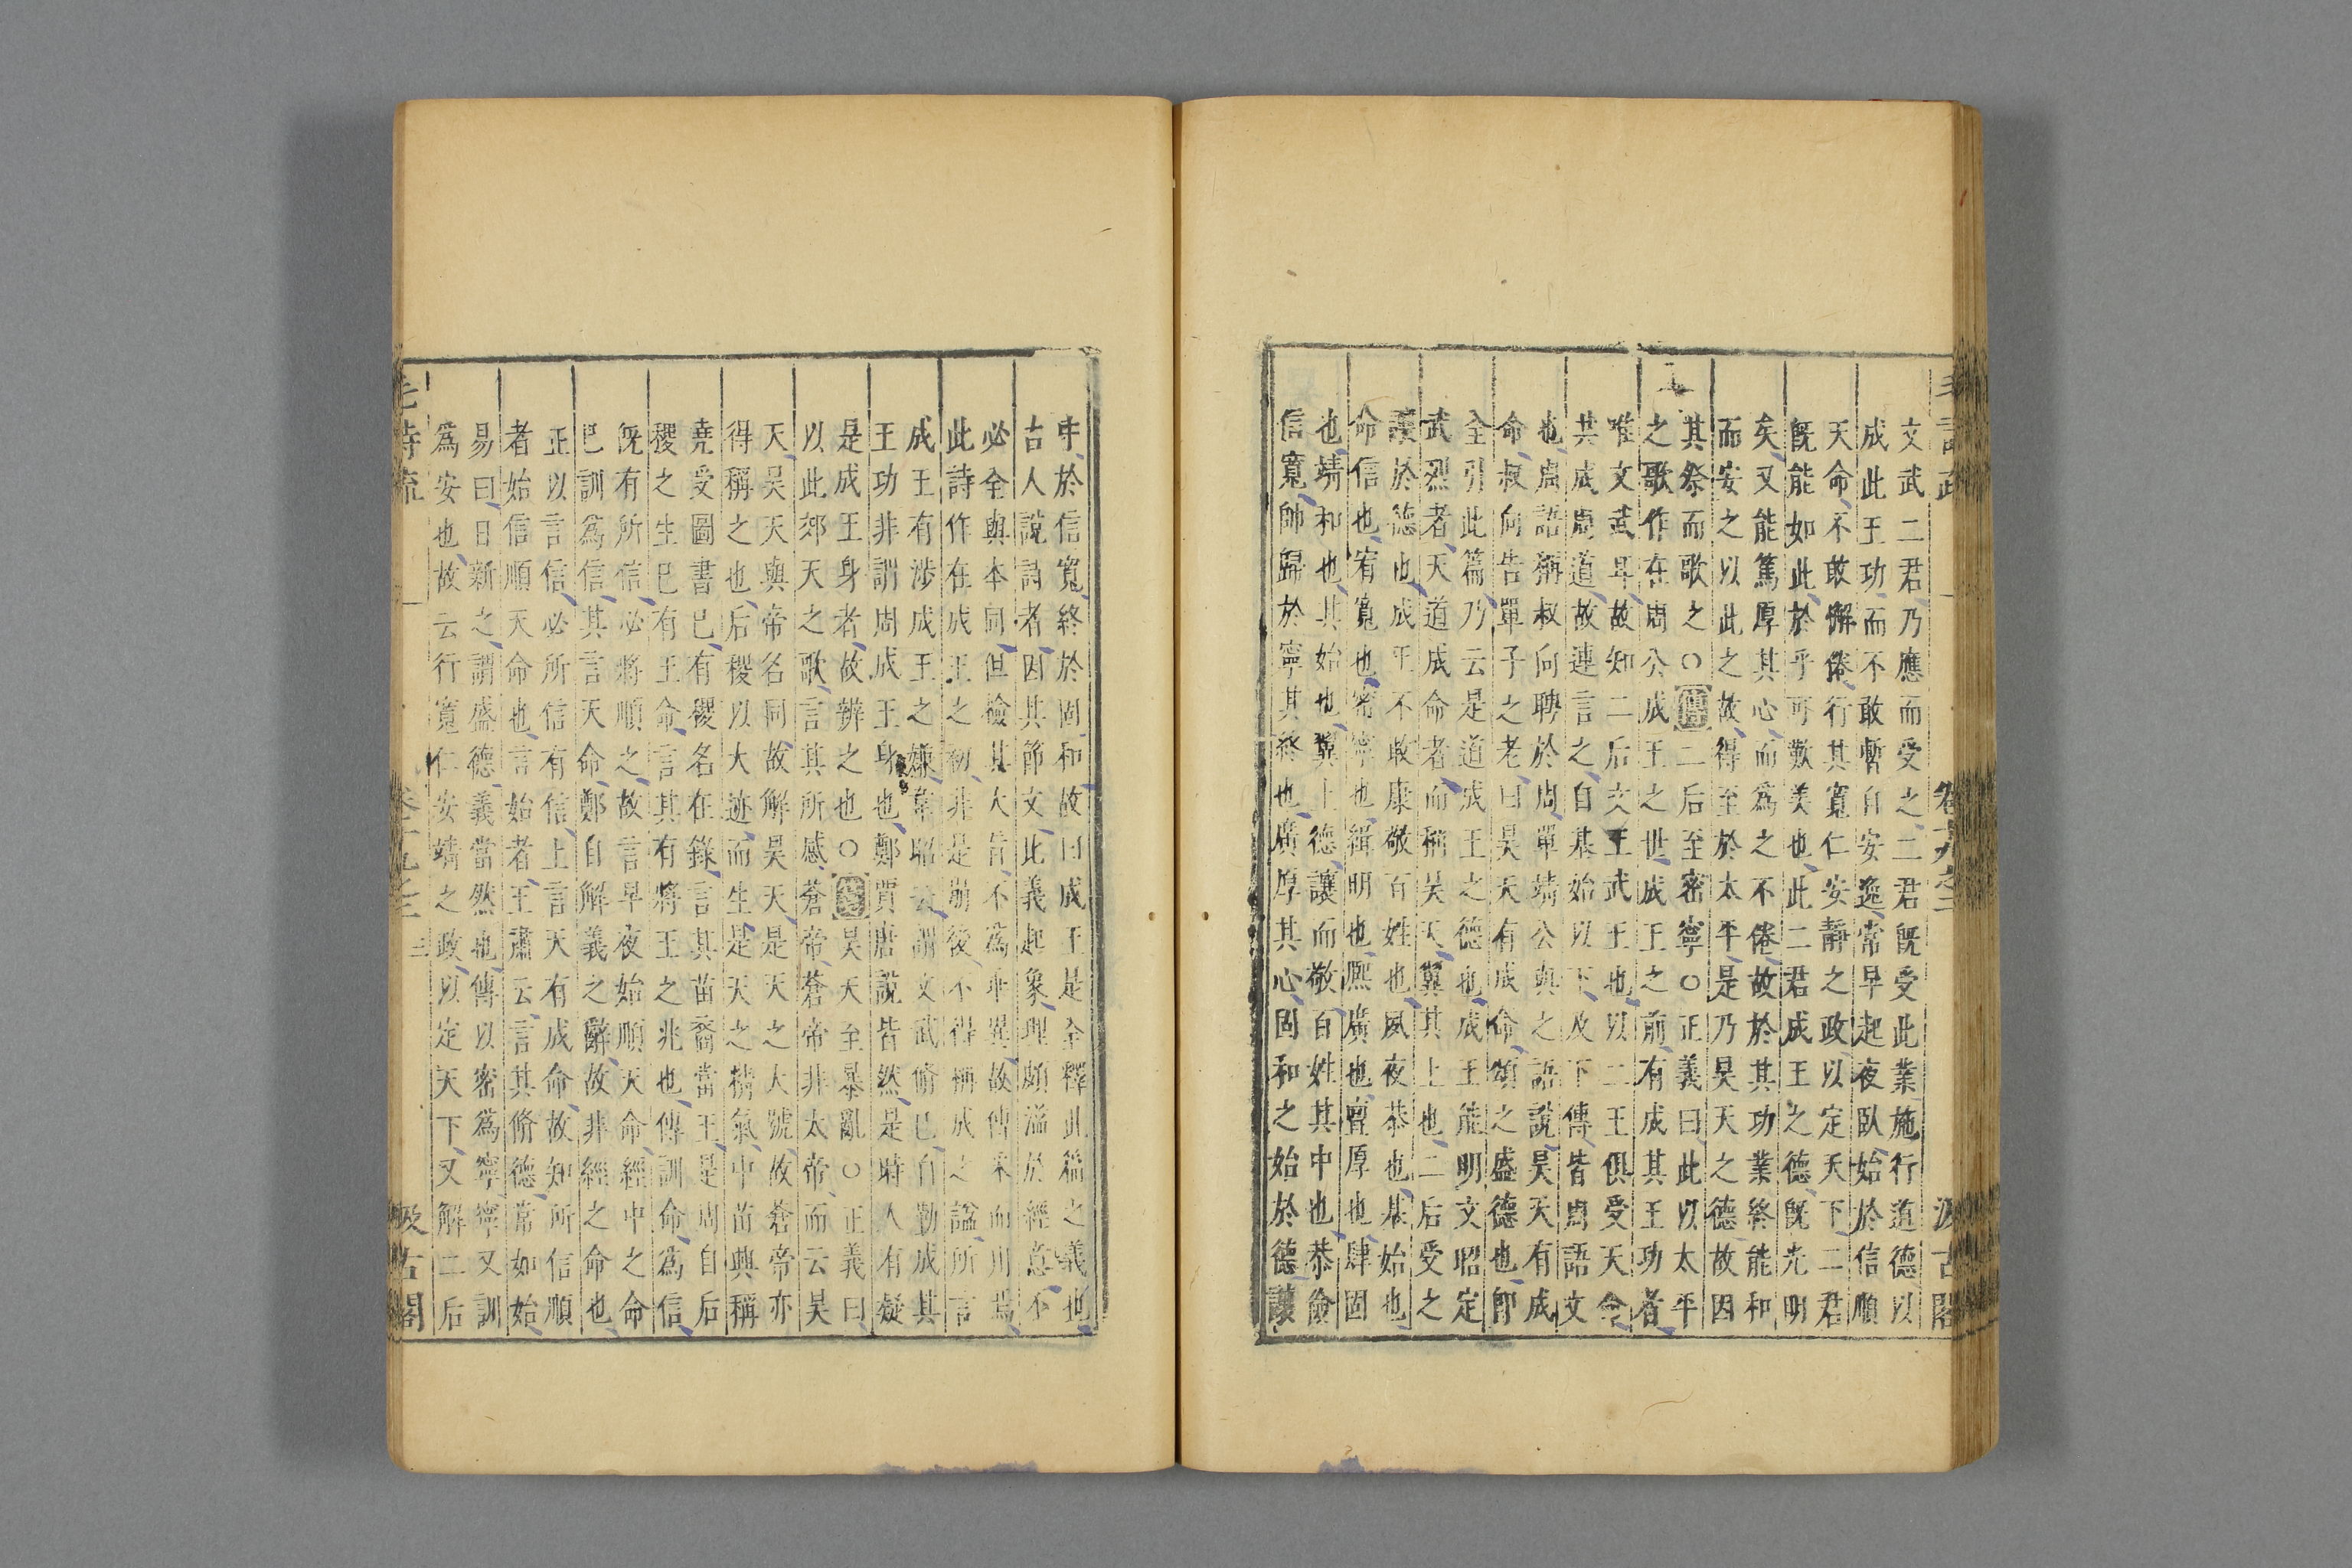 毛詩疏 卷十九之二 汲古閣
文武二君乃應而受之二君旣受此業施行道德以
成此王功而不敢暫自安逸常早起夜臥始於信順
天命不敢懈倦行其寬仁安靜之政以定天下二君
旣能如此於乎可歎美也此二君成王之德旣光明
矣又能篤厚其心而爲之不倦故於其功業終能和
而安之以此之故得至於太平是乃昊天之德故因
其祭而歌之○傳二后至密寧○正義曰此以太平
之歌作在周公成王之世成王之前有成其王功者
唯文武耳故知二后文王武王也以二王俱受天命
共成周道故連言之自基始以下及下傳皆周語文
也周語稱叔向聘於周單靖公與之語說昊天有成
命叔向告單子之老曰昊天有成命頌之盛德也卽
全引此篇乃云是道成王之德也成王能明文昭定
武烈者天道成命者而稱昊天翼其上也二后受之
讓於德也成王不敢康敬百姓也夙夜恭也基始也
命信也宥寬也密寧也緝明也熙廣也亶厚也肆固
也靖和也其始也翼上德讓而敬百姓其中也恭儉
信寬帥歸於寧其終也廣厚其心固和之始於德讓
中於信寬終於固和故曰成王是全釋此篇之義也
古人說詩者因其節文比義起象理頗溢於經意不
必全與本同但檢其大旨不爲乖異故傳采而用焉
此詩作在成王之初非是崩後不得稱成之諡所言
成王有涉成王之嫌韋昭云謂文武脩己自勤成其
王功非謂周成王身也鄭賈唐說皆然是時人有疑
是成王身者故辨之也○箋昊天至暴亂○正義曰
以此郊天之歌言其所感蒼帝蒼帝非太帝而云昊
天昊天與帝名同故解昊天是天之大號故蒼帝亦
得稱之也后稷以大迹而生是天之精氣中苗興稱
堯受圖書已有稷名在錄言其苗裔當王是周自后
稷之生已有王命言其有將王之兆也傳訓命爲信
旣有所信必將順之故言早夜始順天命經中之命
已訓爲信其言天命鄭自解義之辭故非經之命也
正以言信必所信有信上言天有成命故知所信順
者始信順天命也言始者王肅云言其脩德常如始
易曰日新之謂盛德義當然也傳以密爲寧寧又訓
爲安也故云行寬仁安靖之政以定天下又解二后
毛詩疏 卷十九之二 三 汲古閣